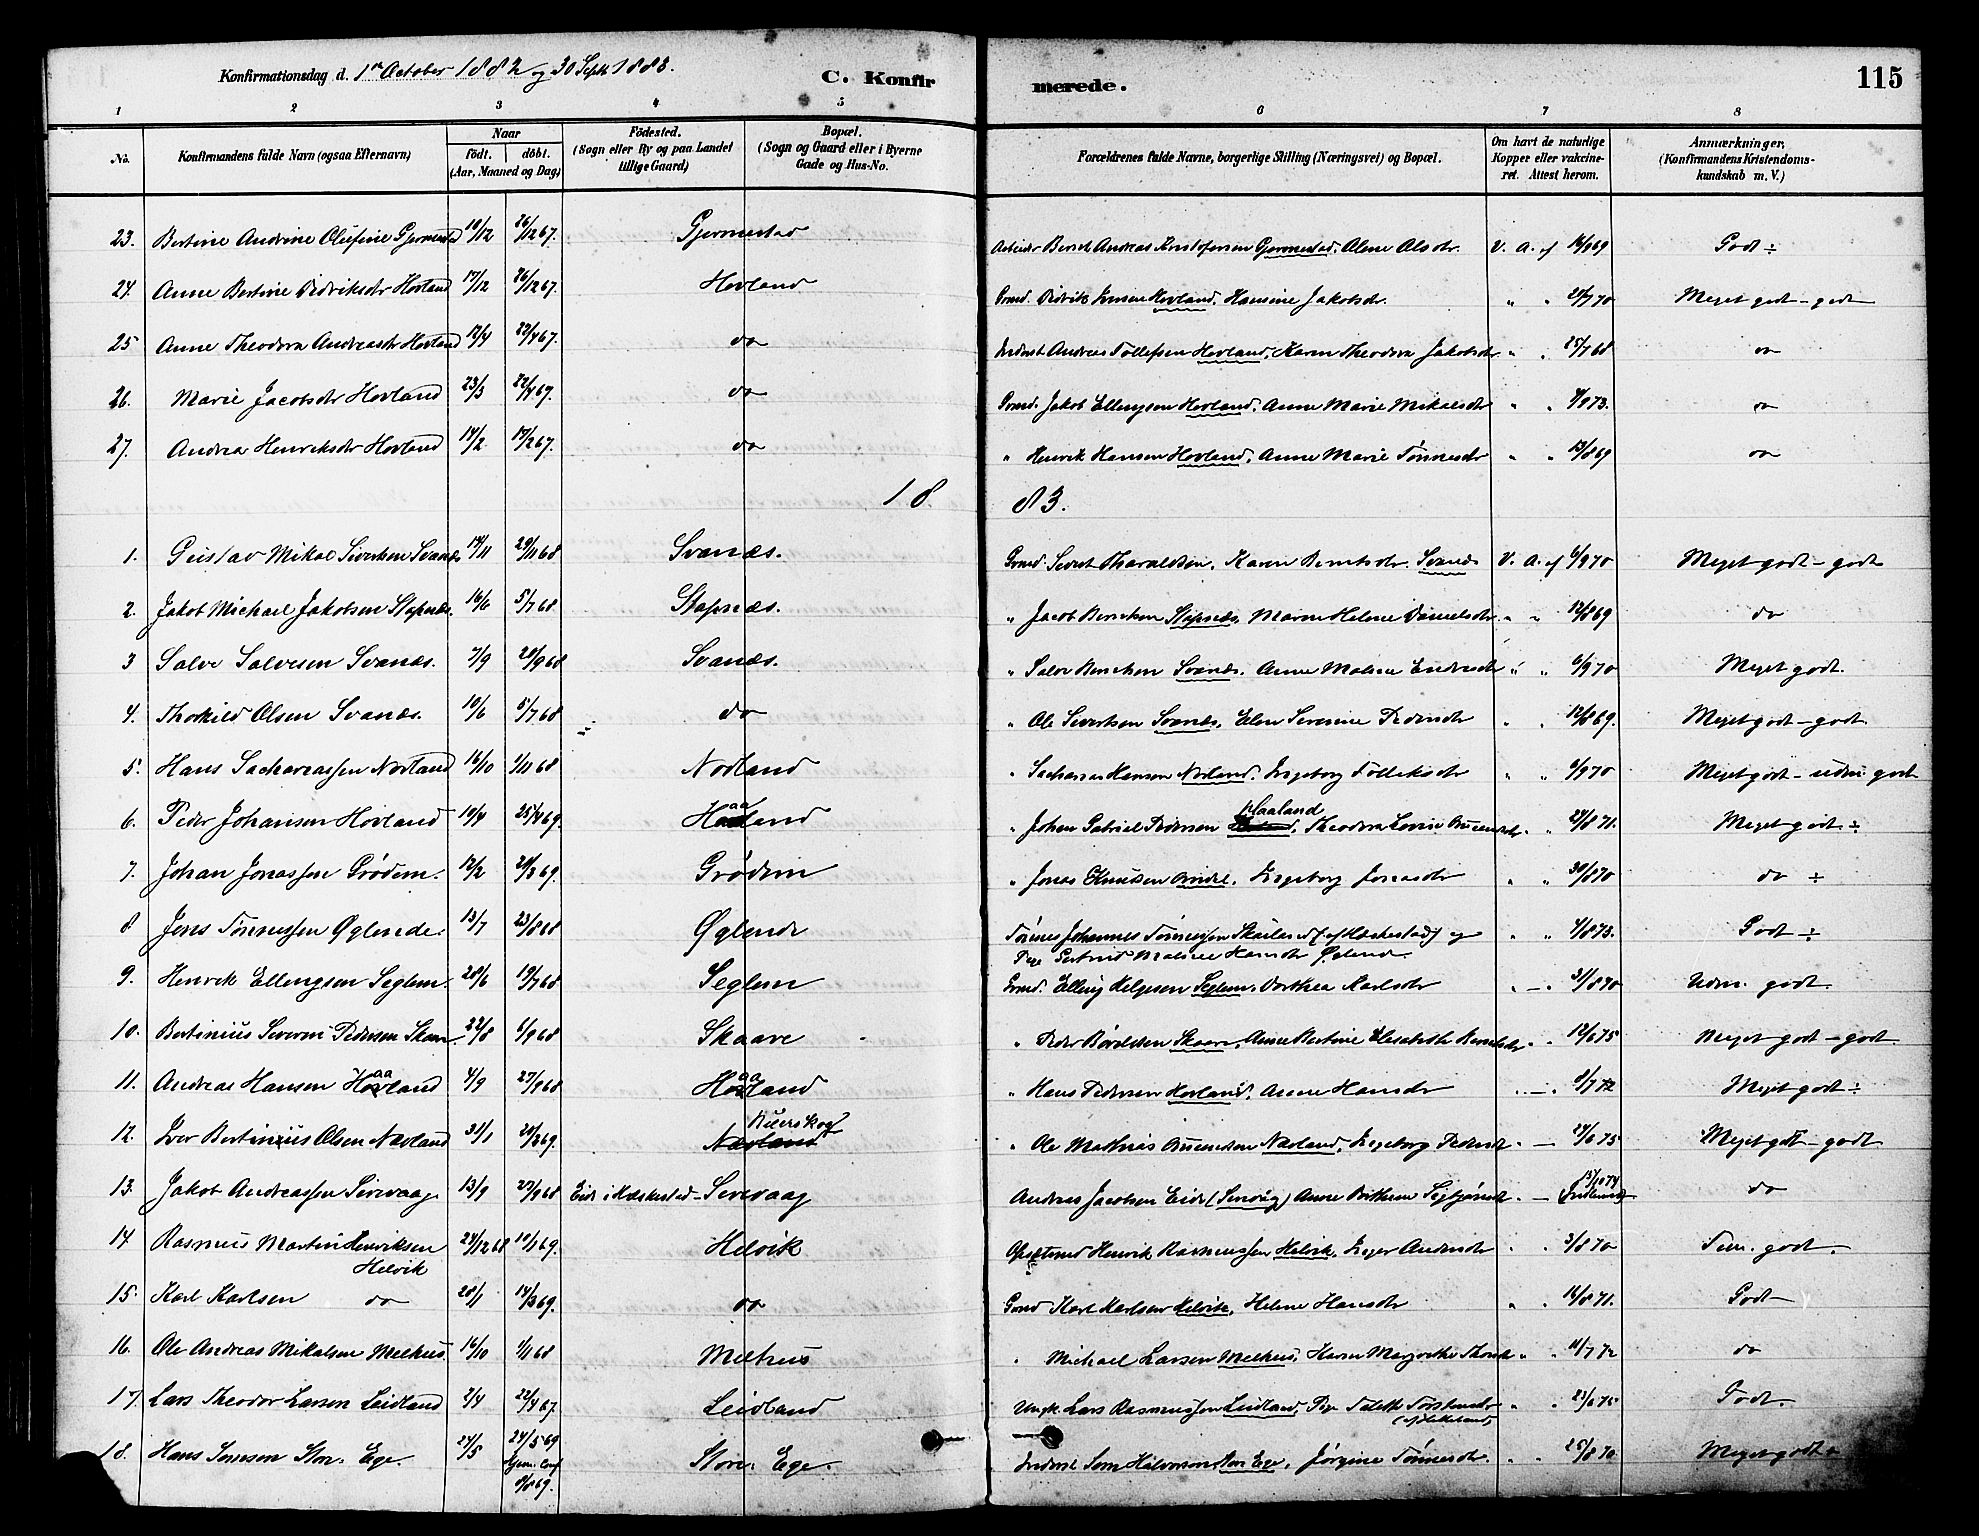 Konfirmationsdag d. 1ste October 1882 og 30 Septb 1883.
C. Konfirmerede.
115
1 2 3 4 5 6 7 8
No.
Konfirmandens fulde Navn (ogsaa Efternavn)
Naar
födt. döbt.
(Aar, Maaned og Dag)
Födested.
(Sogn eller By og paa Landet tillige Gaard)
Bopæl.
(Sogn og Gaard eller i Byerne Gade og Hus-No.
Forældrenes fulde Navne, borgerlige Stilling (Næringsvei) og Bopæl.
Om havt de naturlige Kopper eller vakcineret. Attest herom.
Anmærkninger,
(Konfirmandens Kristendomskundskab m. V.)
23. Bertine Andrine Olufine Gjermestad 10/12 26/12 67. Gjermestad Berent Andreas Kristofersen Gjermestad, Olene Olsdtr. V. A. af 14/9 69 Godt ÷
24. Anne Bertine Didriksdtr Hovland 17/12 26/12 67. Hovland Grmd. Didrik Hovland, Hansine Jakobsdtr. " " 70 Meget godt - godt
25 Anne Theodora Andreasdtr Hovland 12/4 22/4 67. do Inderst Andreas Tollefsen Hovland, Karen Theodora Jakobsdtr " " 25/7 68 do
26. Marie Jacobsdtr Hovland 23/3 22/4 67. do Grmd. Jakob Ellingsen Hovland, Anne Marie Mikalsdtr " " 9/8 73. do
27. Andrea Henriksdtr Hovland 14/2 17/2 67. do " Henrik Hansen Hovland, Anne Marie Tønnesdtr " " 13/8 69 do
18 83.
1. Gustav Mikal Sivertsen Svanæs 14/11 29/11 68 Svanæs. Grmd. Sivert Tharaldsen, Karen Berntsdtr. Svanæs V. A. af 6/9 70 Meget godt - godt
2. Jakob Michael Jakobsen Stapnæs. 16/6 5/7 68 Stapnæs. " Jacob Berentsen Stapnæs, Maren Helene Danielsdtr. " " 12/8 69 do
3 Salve Salvesen Svanæs. 7/9 20/9 68 Svanæs. " Salve Berntsen Svanæs. Anne Malene Endresdtr " " 6/9 70 Meget godt.
4. Thorkild Olsen Svanæs. 10/6 5/7 68 do " Ole Sivertsen Svanæs, Elen Severine Pedersdtr " " 12/8 69. Meget godt - godt
5. Hans Sachariassen Nodland 16/10 1/11 68 Nodland " Sacharias Hansen Nodland. Ingeborg Tolleksdtr " " 6/9 70 Meget godt - udm. godt
6. Peder Johansen Hovland 10/4 25/4 69. Haaland " Johan Gabriel Pedersen Haaland, Theodora Lovise " " 8 71. Meget godt ÷
7. Johan Jonassen Grödem. 12/2 28/3 69. Grödem " Jonas Grödem, Ingeborg Jonasdtr " " 30/8 70 do ÷
8 Jens Tönnessen Øglende. 13/7 23/8 68 Øglende Johannes Tönnessen Skailand (af Heskestad) og " " 4/8 73. Godt ÷
Pige Gertrud Malene Hansdtr Øglend.
9. Henrik Ellingsen Seglem. 28/6 19/7 68 Seglem Grmd. Elling Helgesen Seglem, Dorthea Karlsdtr " - " 31/8 70 Udm. godt.
10. Bertinius Severin Pedersen Skaare 22/8 6/9 68 Skaare " Peder Skaare, Anne Bertine Elisabeth " " 12/6 75 Meget godt - godt.
11. Andreas Hansen Haaland 4/9 27/9 68 Haaland " Hans Pedersen Hovland, Anne Hansdtr " - " 9/7 72 Meget godt ÷
12. Iver Bertinius Olsen Nævland 31/1 28/3 69. Ruerskog Nævland " Ole Mathias Nævland, Ingeborg Pedersdtr " - 6 75 Meget godt - godt
13. Jakob Andreassen Sirevaag 13/9 27/9 68 Eide i Heskestad - Sirevaag Andreas Jacobsen Eide (Sirevåg) Anne Sigbjörnsdtr " - 74 do
14 Rasmus Martin Henriksen Helvik 24/12 68 10/1 69. Helvik Henrik Rasmussen Helvik, Inger Andersdtr " " 3/8 70 Tem. godt.
15. Karl Karlsen do 28/1 14/3 69. do Grmd Karl Karlsen Helvik, Helene Hansdtr " " 14/8 71. Godt
16. Ole Andreas Mikalsen Melhus. 14/10 1/11 68 Melhus " Michael Larsen Melhus, Karen Margrethe " " 11/7 72 do
17. Lars Theodor Larsen Leidland 2/4 22/4 67. Leidland Ungk. Lars Rasmussen Leidland, Pige Talette Torstensdtr (af Helleland) " " 23/6 75 Godt.
18. Hans Sörensen Store Ege. 24/5 24/5 69 Hjem. Conf 8/8 69. Store Ege. Inderst Sören Halvorsen Store Ege, Jörgine Tönnesdtr. " " 25/8 70 Meget godt